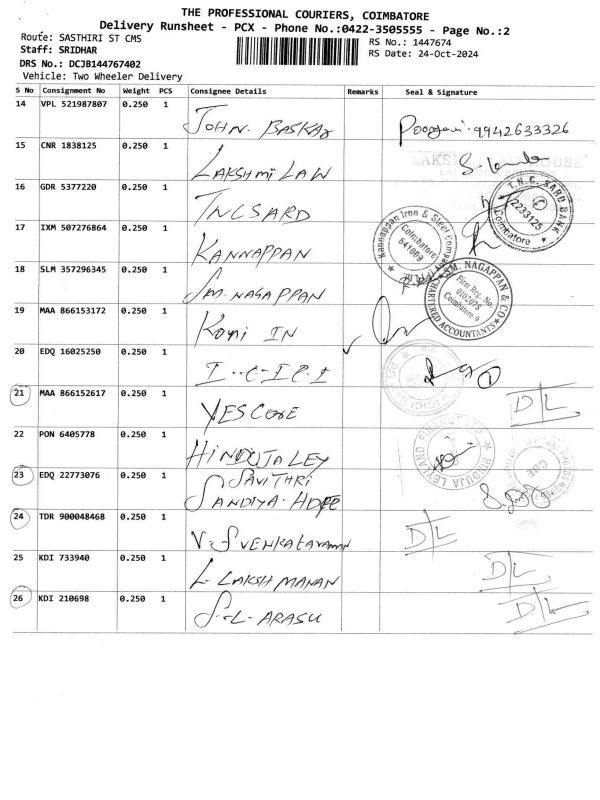 THE PROFESSIONAL COURIERS, COIMBATORE
Delivery Runsheet - PCX - Phone No.:0422-3505555 - Page No.:2
Route: SASTHIRI ST CMS
RS No.: 1447674
Staff: SRIDHAR
RS Date: 24-Oct-2024
DRS No.: DCJB144767402
Vehicle: Two Wheeler Delivery
S No Consignment No Weight PCS Consignee Details Remarks Seal & Signature
14 VPL 521987807 0.250 1
JOHN. BASKAR 9942633326
15 CNR 1838125 0.250 1
LAKSHMI LAW
16 GDR 5377220 0.250 1
TNCSARD
T.N.C. SARD BANK
2233125
Coimbatore
17 IXM 507276864 0.250 1
KANNAPPAN
Kannappan Iron & Steel Company
Coimbatore
641009
18 SLM 357296345 0.250 1
SM. NAGAPPAN
SM. NAGAPPAN & CO
Firm Reg. No.
Coimbatore
CHARTERED ACCOUNTANTS
19 MAA 866153172 0.250 1
IN
20 EDQ 16025250 0.250 1
I-C-I-C-I
21 MAA 866152617 0.250 1
YES CORE D/L
22 PON 6405778 0.250 1
HINDUJA LEY
HINDUJA LEYLAND FINANCE LTD
23 EDQ 22773076 0.250 1
SAVITHRI
SANDIYA. HDFC
24 TDR 900048468 0.250 1
V. S VENKATARAMAN D/L
25 KDI 733940 0.250 1
L. LAKSHMANAN D/L
26 KDI 210698 0.250 1
S-L- ARASU D/L